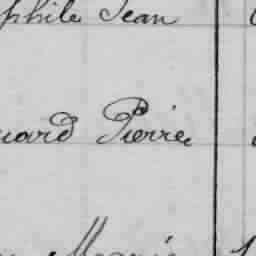 phile Jean
uard Pierre
Marie